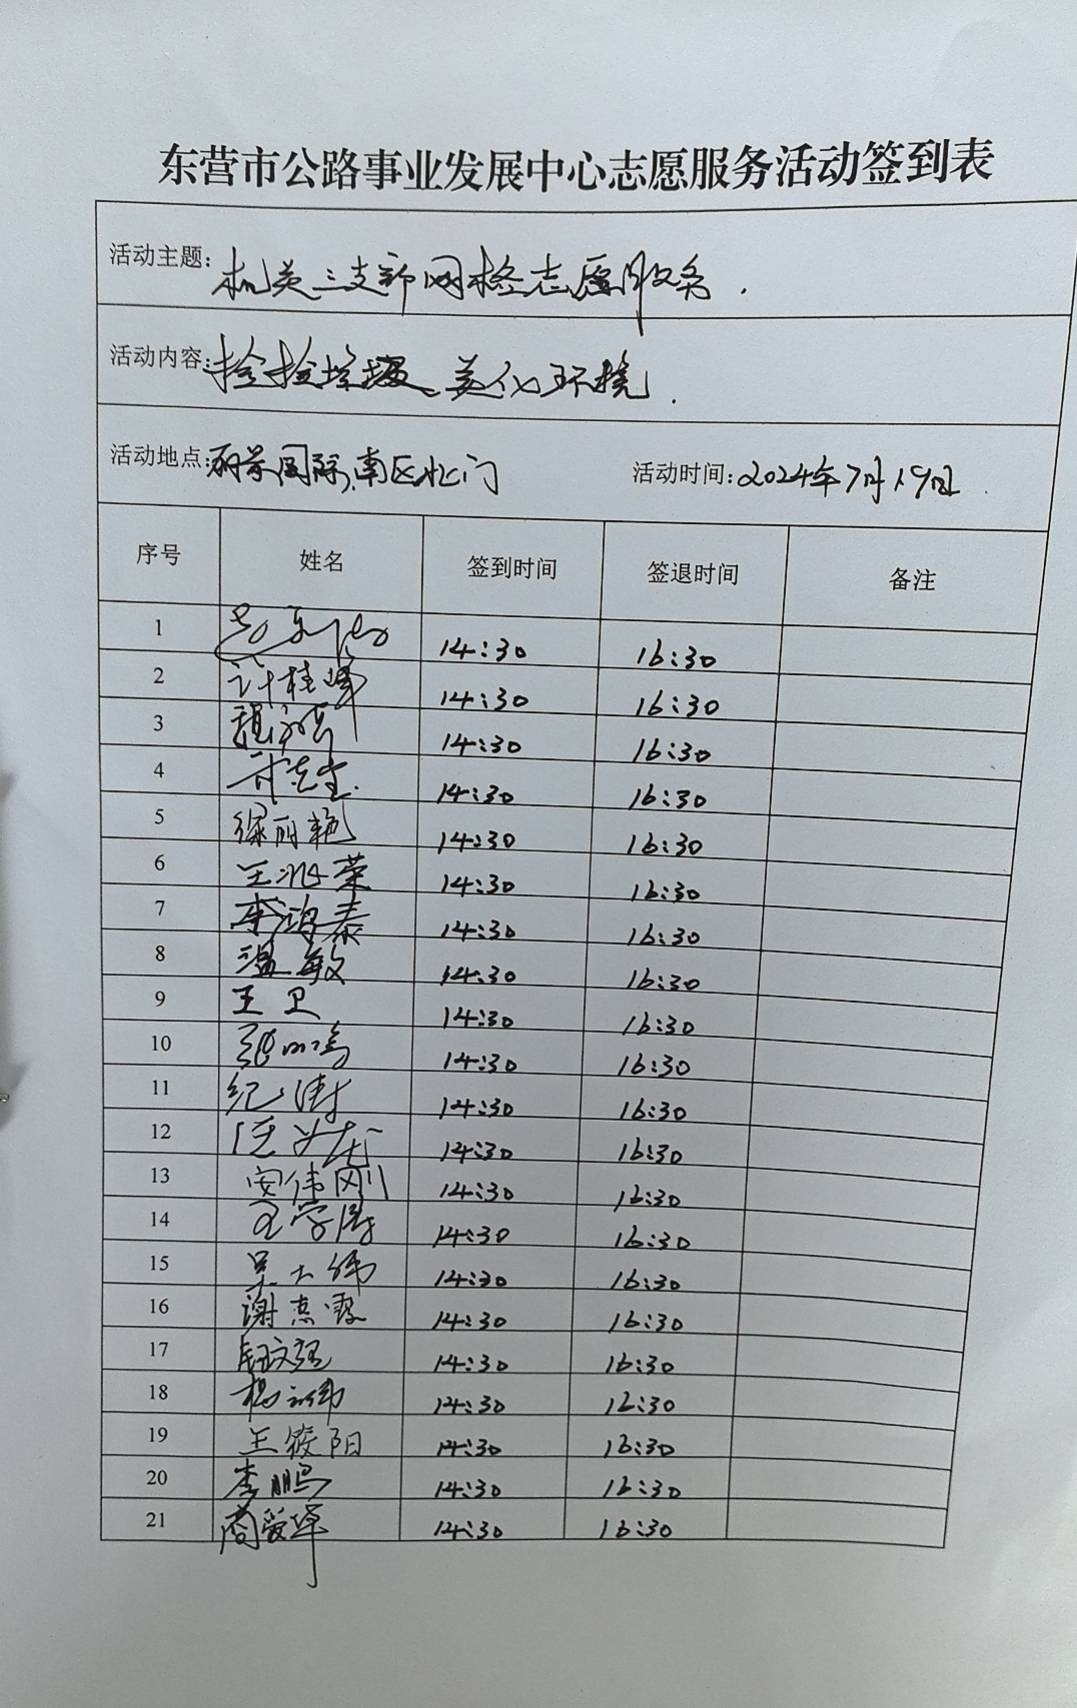 东营市公路事业发展中心志愿服务活动签到表
活动主题：机关三支部网格志愿服务.
活动内容：捡拾垃圾、美化环境.
活动地点：丽景国际南区北门 活动时间：2024年7月19日.
序号 姓名 签到时间 签退时间 备注
1 14:30 16:30
2 许桂峰 14:30 16:30
3 14:30 16:30
4 14:30 16:30
5 徐丽艳 14:30 16:30
6 王兆荣 14:30 16:30
7 李鸿泰 14:30 16:30
8 温敏 14:30 16:30
9 王卫 14:30 16:30
10 14:30 16:30
11 纪涛 14:30 16:30
12 14:30 16:30
13 安伟刚 14:30 16:30
14 14:30 16:30
15 吴大伟 14:30 16:30
16 14:30 16:30
17 14:30 16:30
18 14:30 16:30
19 王筱阳 14:30 16:30
20 李鹏 14:30 16:30
21 商爱华 14:30 16:30